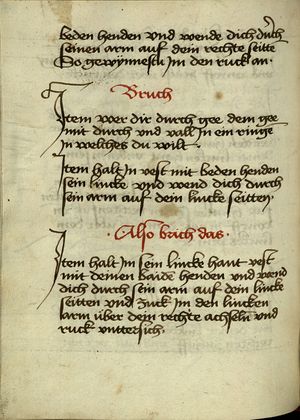 beden henden vnd wende dich durch
seinen arm auf dein rechte seitte
So gewynnestu im den ruck an
Bruch
Item wer dir durch gee dem gee
mit durch vnd vall in ee in ringe
in welches du wilt
Item halt in vest mit beden henden
sein lincke vnd wend dich durch
sein arm auf dem lincke seitten
Also brich das
Item halt im sein lincke hant vest
mit deinen baiden henden vnd wend
dich durch sein arm auf dein lincke
seitten vnd zuck im den lincken
arm über dein rechte achseln vnd
ruck vntersich